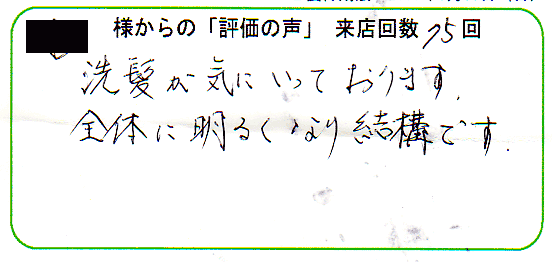 様からの「評価の声」 来店回数 75回
洗髪が気にいっております.
全体に明るくなり結構です.